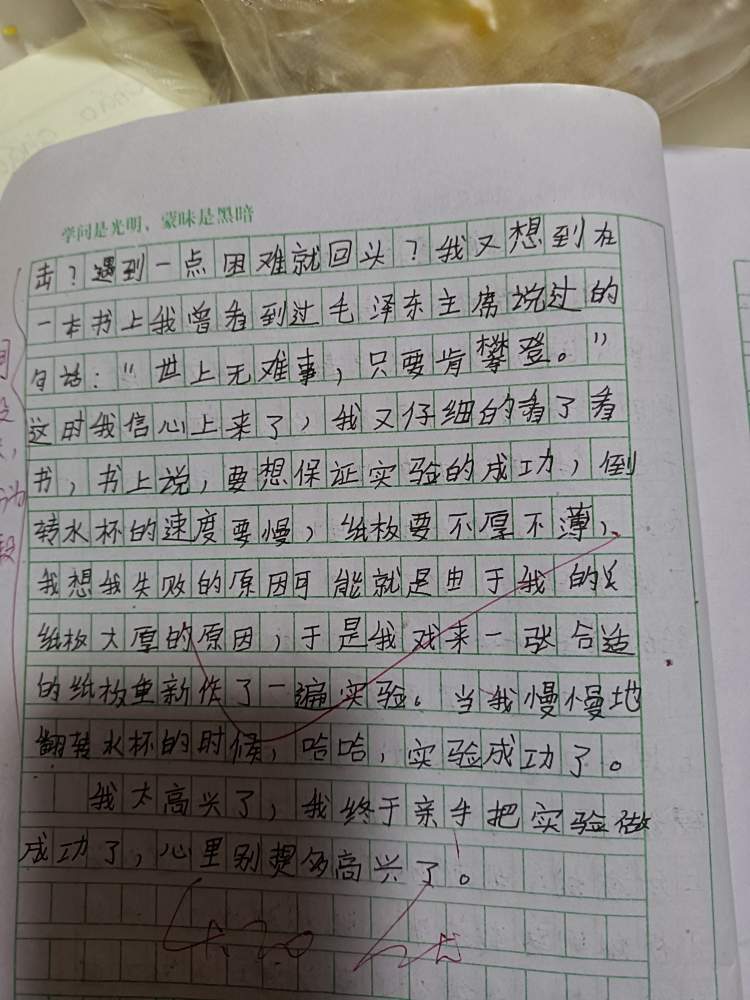 学问是光明，蒙昧是黑暗
击？遇到一点困难就回头？我又想到在
一本书上我曾看到过毛泽东主席说过的
句话："世上无难事，只要肯攀登。"
这时我信心上来了，我又仔细的看了看
书，书上说，要想保证实验的成功，倒
转水杯的速度要慢，纸板要不厚不薄，
我想我失败的原因可能就是由于我的
纸板太厚的原因，于是我找来一张合适
的纸板重新作了一遍实验。当我慢慢地
翻转水杯的时候，哈哈，实验成功了。
我太高兴了，我终于亲手把实验做
成功了，心里别提多高兴了。